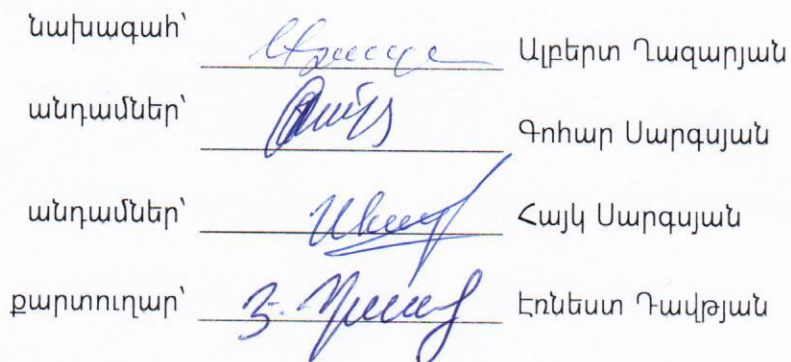 նախագահ՝ Ալբերտ Ղազարյան
անդամներ՝ Գոհար Սարգսյան
անդամներ՝ Հայկ Սարգսյան
քարտուղար՝ Էռնեստ Դավթյան